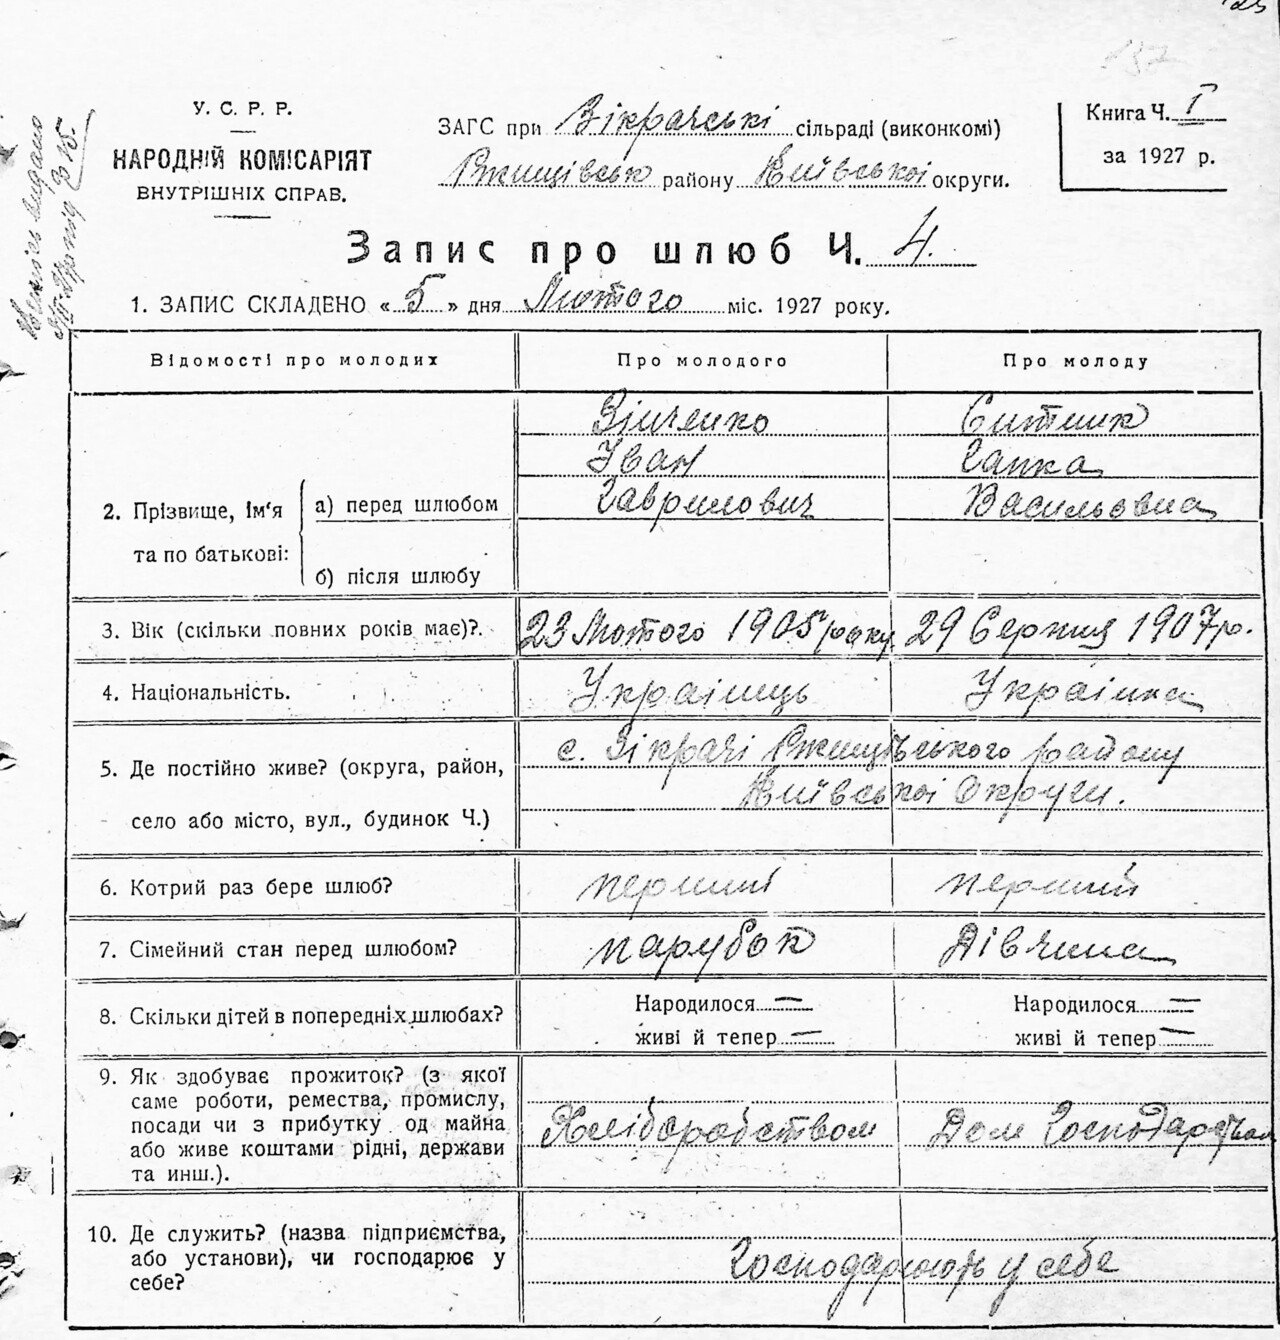 У. С. Р. Р.
НАРОДНІЙ КОМІСАРІЯТ
ВНУТРІШНІХ СПРАВ.
ЗАГС при Зікрачські сільраді (виконкомі)
Ржищівськ району Київської округи.
Книга Ч. I
за 1927 р.
137
Запис про шлюб Ч. 4.
1. ЗАПИС СКЛАДЕНО « 5 » дня Лютого міс. 1927 року.
Відомості про молодих
Про молодого
Про молоду
2. Прізвище, ім'я та по батькові:
а) перед шлюбом
б) після шлюбу
Зінченко
Іван
Гаврилович
Ситник
Гапка
Васильовна
3. Вік (скільки повних років має)?.
23 Лютого 1905 року
29 Серпня 1907 р.
4. Національність.
Українець
Українка
5. Де постійно живе? (округа, район,
село або місто, вул., будинок Ч.)
с. Зікрачі Ржищівського району
Київської Округи.
6. Котрий раз бере шлюб?
перший
перший
7. Сімейний стан перед шлюбом?
парубок
Дівчина
8. Скільки дітей в попередніх шлюбах?
Народилося —
живі й тепер —
Народилося —
живі й тепер —
9. Як здобуває прожиток? (з якої
саме роботи, ремества, промислу,
посади чи з прибутку од майна
або живе коштами рідні, держави
та инш.).
Хліборобством
Дом Господарством
10. Де служить? (назва підприємства,
або установи), чи господарює у
себе?
Господарюють у себе